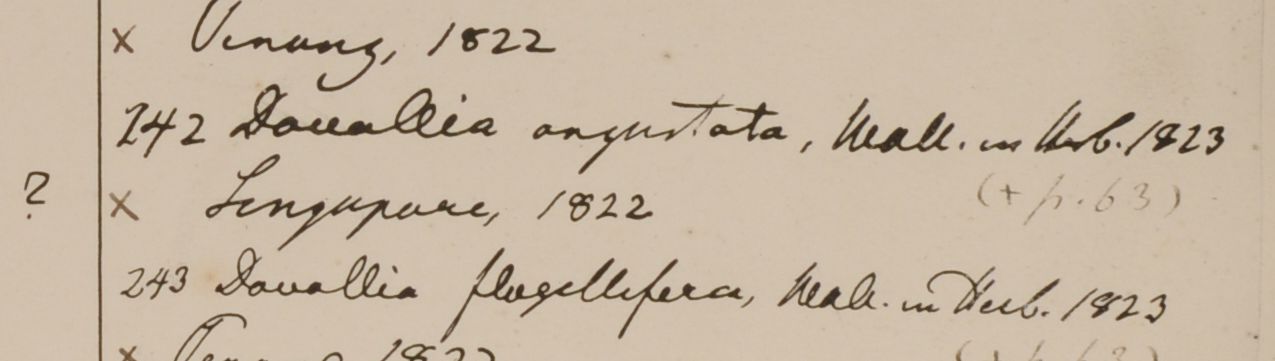 × Penang, 1822
242 Davallia angustata, Wall. in Herb. 1823
(+ p. 63)
? × Singapore, 1822
243 Davallia flagellifera, Wall. in Herb. 1823
× Penang 1822